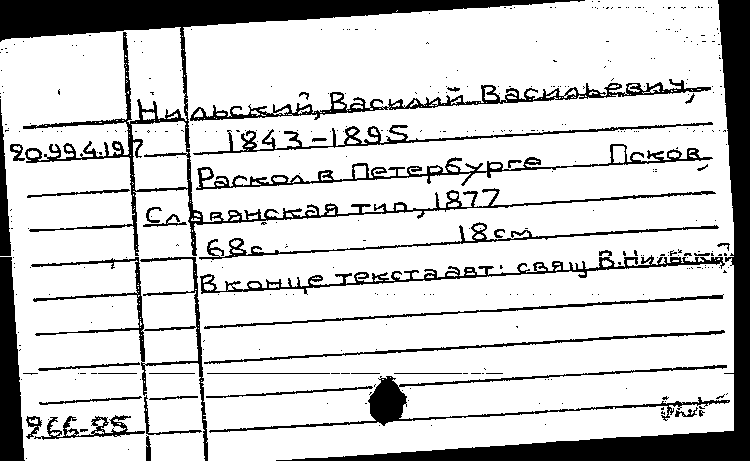 Нильский, Василий Васильевич,
20.99.4.197 1843-1895
Раскол в Петербурге Псков,
Славянская тип., 1877
68с. 18см
В конце текста авт: свящ В.Нильский
266-85